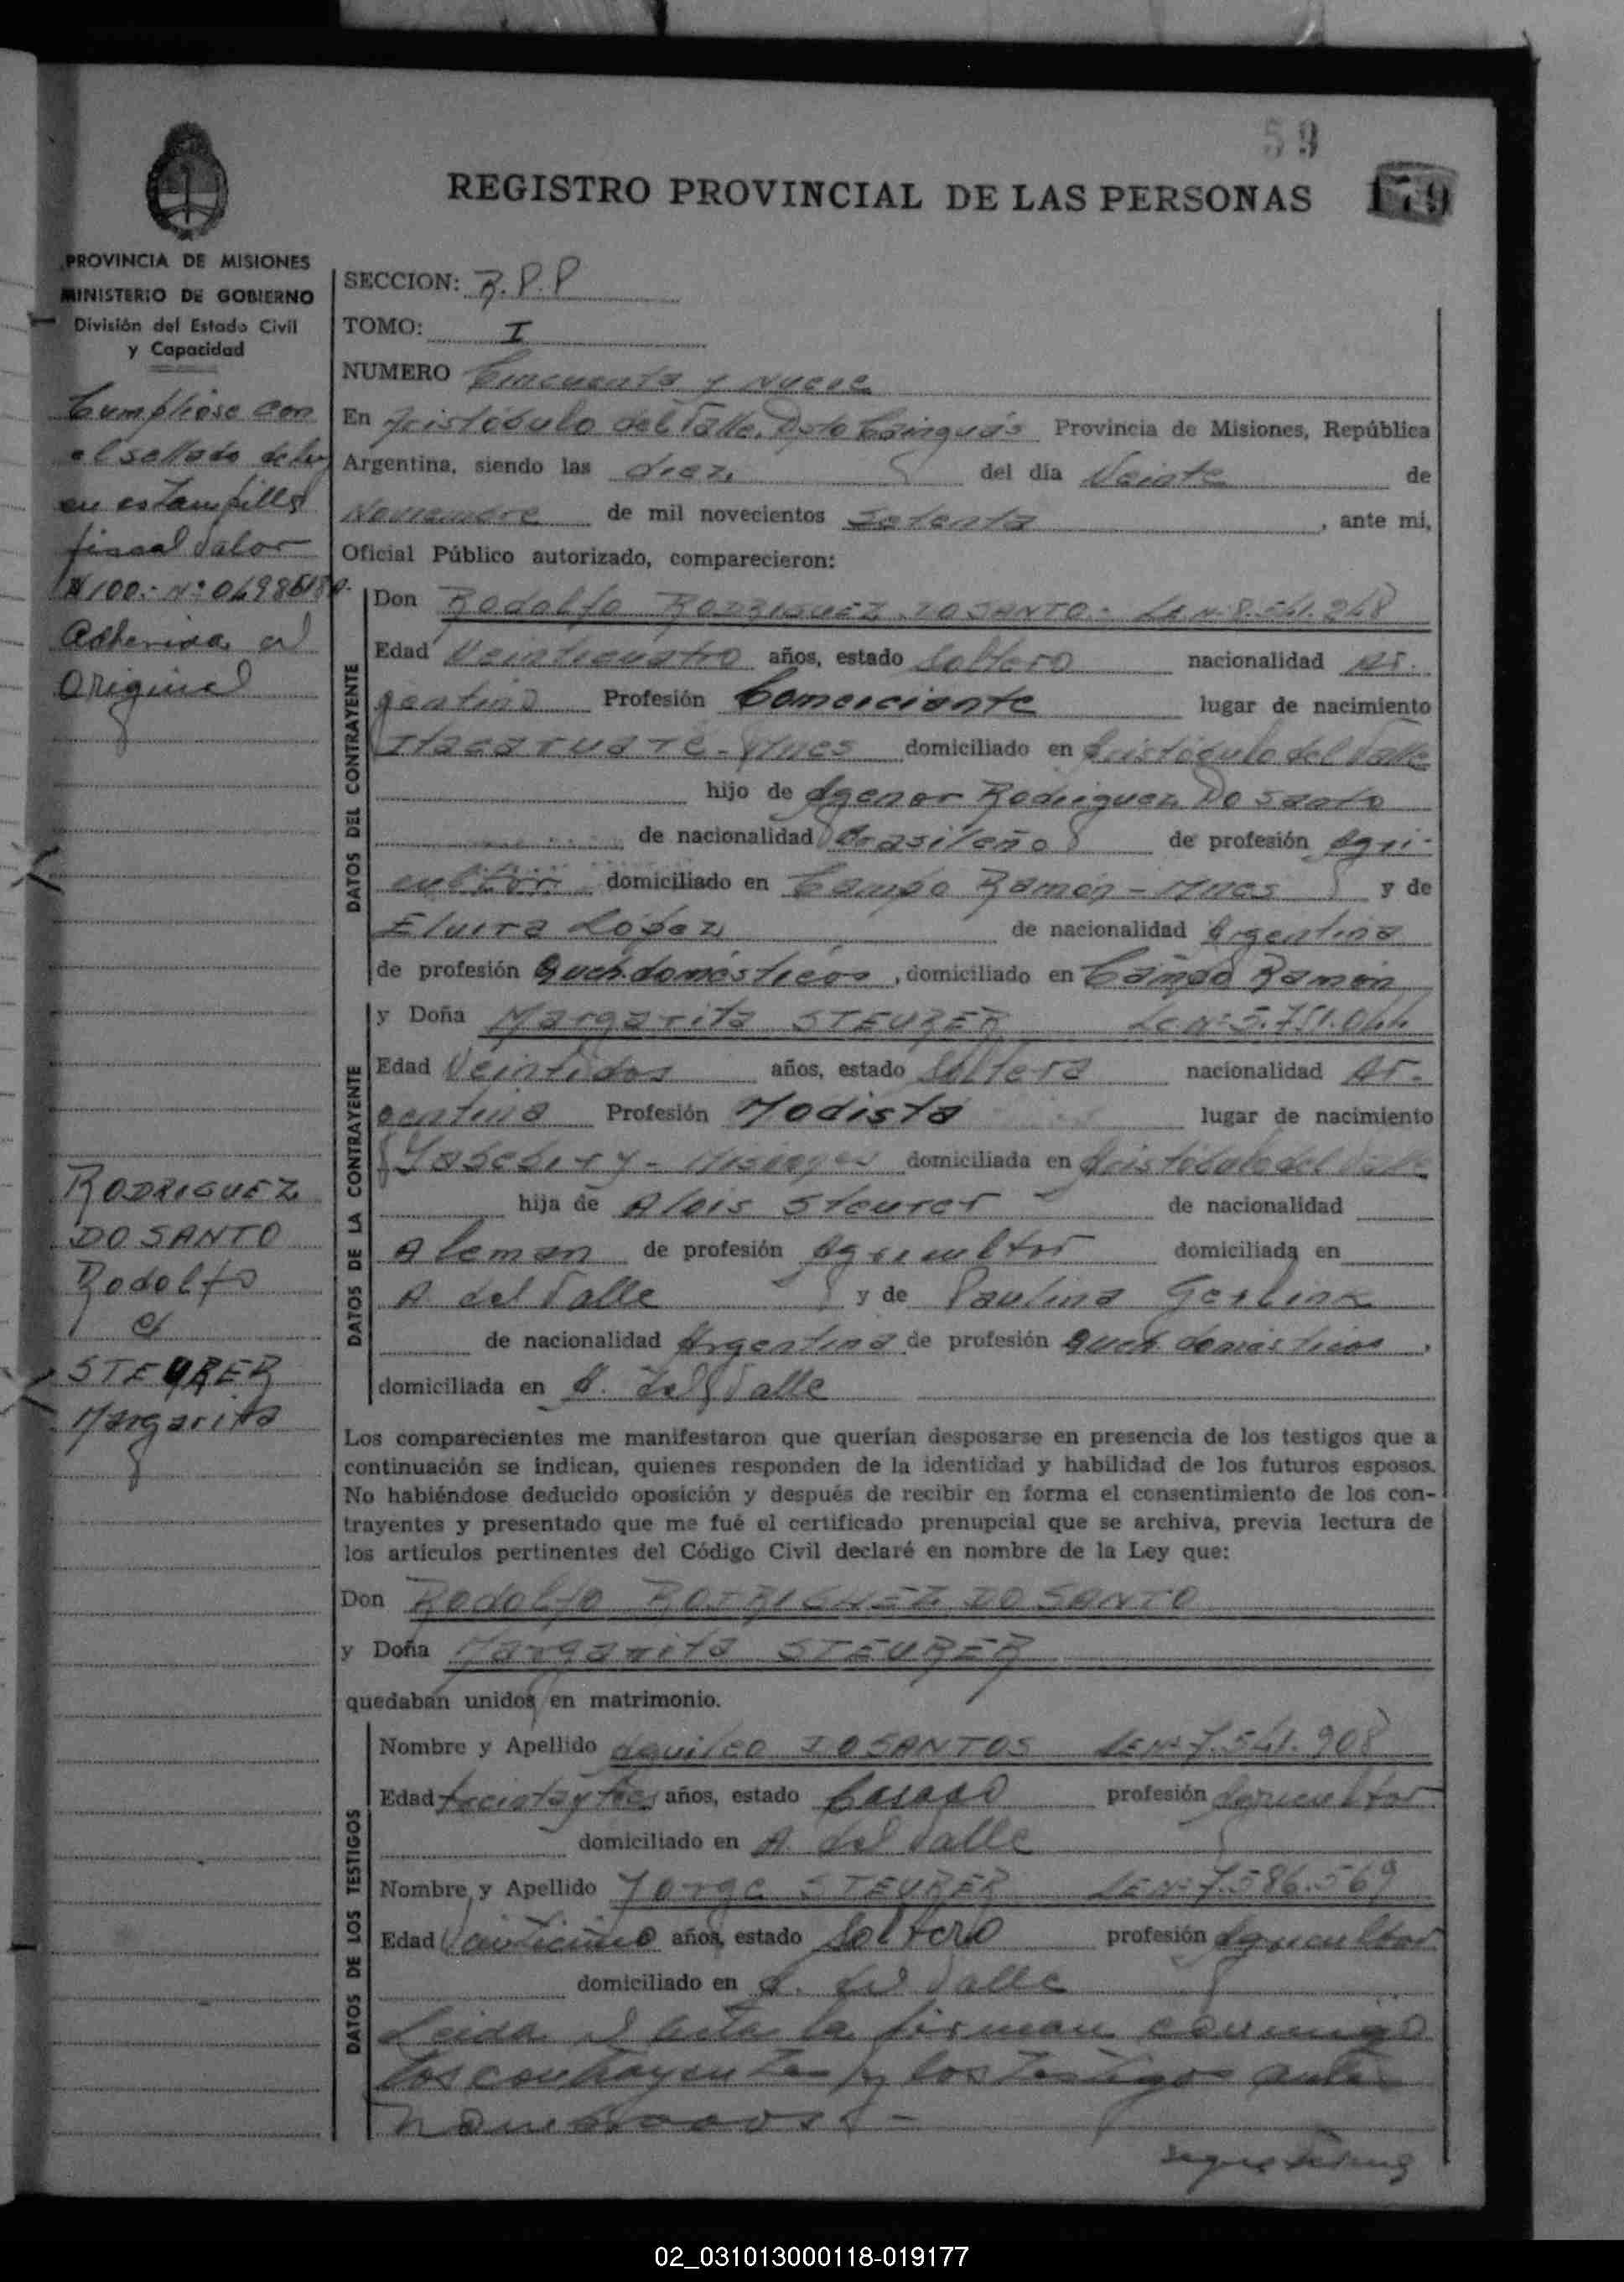 59
REGISTRO PROVINCIAL DE LAS PERSONAS 179
PROVINCIA DE MISIONES
MINISTERIO DE GOBIERNO
División del Estado Civil
y Capacidad
Cumpliose con
el sellado de ley
en estampilla
fiscal valor
Adherida al
Original
RODRIGUEZ
DO SANTO
Rodolfo
c/
STEURER
Margarita
SECCION: R.P.P
TOMO: I
NUMERO Cincuenta y Nueve
En Aristóbulo del Valle, Dpto Cainguás Provincia de Misiones, República
Argentina, siendo las diez del día Veinte de
Noviembre de mil novecientos Setenta, ante mi,
Oficial Público autorizado, comparecieron:
DATOS DEL CONTRAYENTE
Don Rodolfo RODRIGUEZ DO SANTO.- L.E.Nº 8.541.248
Edad Veinticuatro años, estado Soltero nacionalidad Ar-
gentino Profesión Comerciante lugar de nacimiento
Itacaruaré - Mnes domiciliado en Aristóbulo del Valle
hijo de Agenor Rodriguez Do Santo
de nacionalidad Brasileño de profesión Agri-
cultor domiciliado en Campo Ramón - Mnes y de
Elvira López de nacionalidad Argentina
de profesión Queh. domésticos, domiciliado en Campo Ramón
DATOS DE LA CONTRAYENTE
y Doña Margarita STEURER L.C.Nº 5.751.044
Edad Veintidos años, estado Soltera nacionalidad Ar-
gentina Profesión Modista lugar de nacimiento
Yabebiry - Misiones domiciliada en Aristóbulo del Valle
hija de Alois Steurer de nacionalidad
Aleman de profesión Agricultor domiciliada en
A del Valle y de Paulina
de nacionalidad Argentina de profesión Queh. domésticos,
domiciliada en A. del Valle
Los comparecientes me manifestaron que querían desposarse en presencia de los testigos que a
continuación se indican, quienes responden de la identidad y habilidad de los futuros esposos.
No habiéndose deducido oposición y después de recibir en forma el consentimiento de los con-
trayentes y presentado que me fué el certificado prenupcial que se archiva, previa lectura de
los artículos pertinentes del Código Civil declaré en nombre de la Ley que:
Don Rodolfo RODRIGUEZ DO SANTO
y Doña Margarita STEURER
quedaban unidos en matrimonio.
DATOS DE LOS TESTIGOS
Nombre y Apellido DOSANTOS L.E.Nº 7.541.908
Edad treinta y tres años, estado Casado profesión Agricultor
domiciliado en A. del Valle
Nombre y Apellido Jorge STEURER L.E.Nº 7.586.569
Edad Veinticinco años, estado Soltero profesión Agricultor
domiciliado en A. del Valle
Leida el acta la firman conmigo
los contrayentes y los testigos ante
nombrados.-
02_031013000118-019177